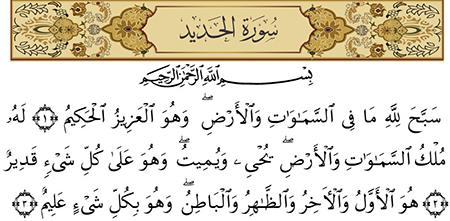 سُورَةُ الحَدِيدِ
بِسْمِ اللَّهِ الرَّحْمَٰنِ الرَّحِيمِ
سَبَّحَ لِلَّهِ مَا فِى السَّمَاوَاتِ وَالْأَرْضِ ۖ وَهُوَ الْعَزِيزُ الْحَكِيمُ ﴿١﴾ لَهُ
مُلْكُ السَّمَاوَاتِ وَالْأَرْضِ ۖ يُحْيِى وَيُمِيتُ ۖ وَهُوَ عَلَىٰ كُلِّ شَىْءٍ قَدِيرٌ
﴿٢﴾ هُوَ الْأَوَّلُ وَالْآخِرُ وَالظَّاهِرُ وَالْبَاطِنُ ۖ وَهُوَ بِكُلِّ شَىْءٍ عَلِيمٌ ﴿٣﴾